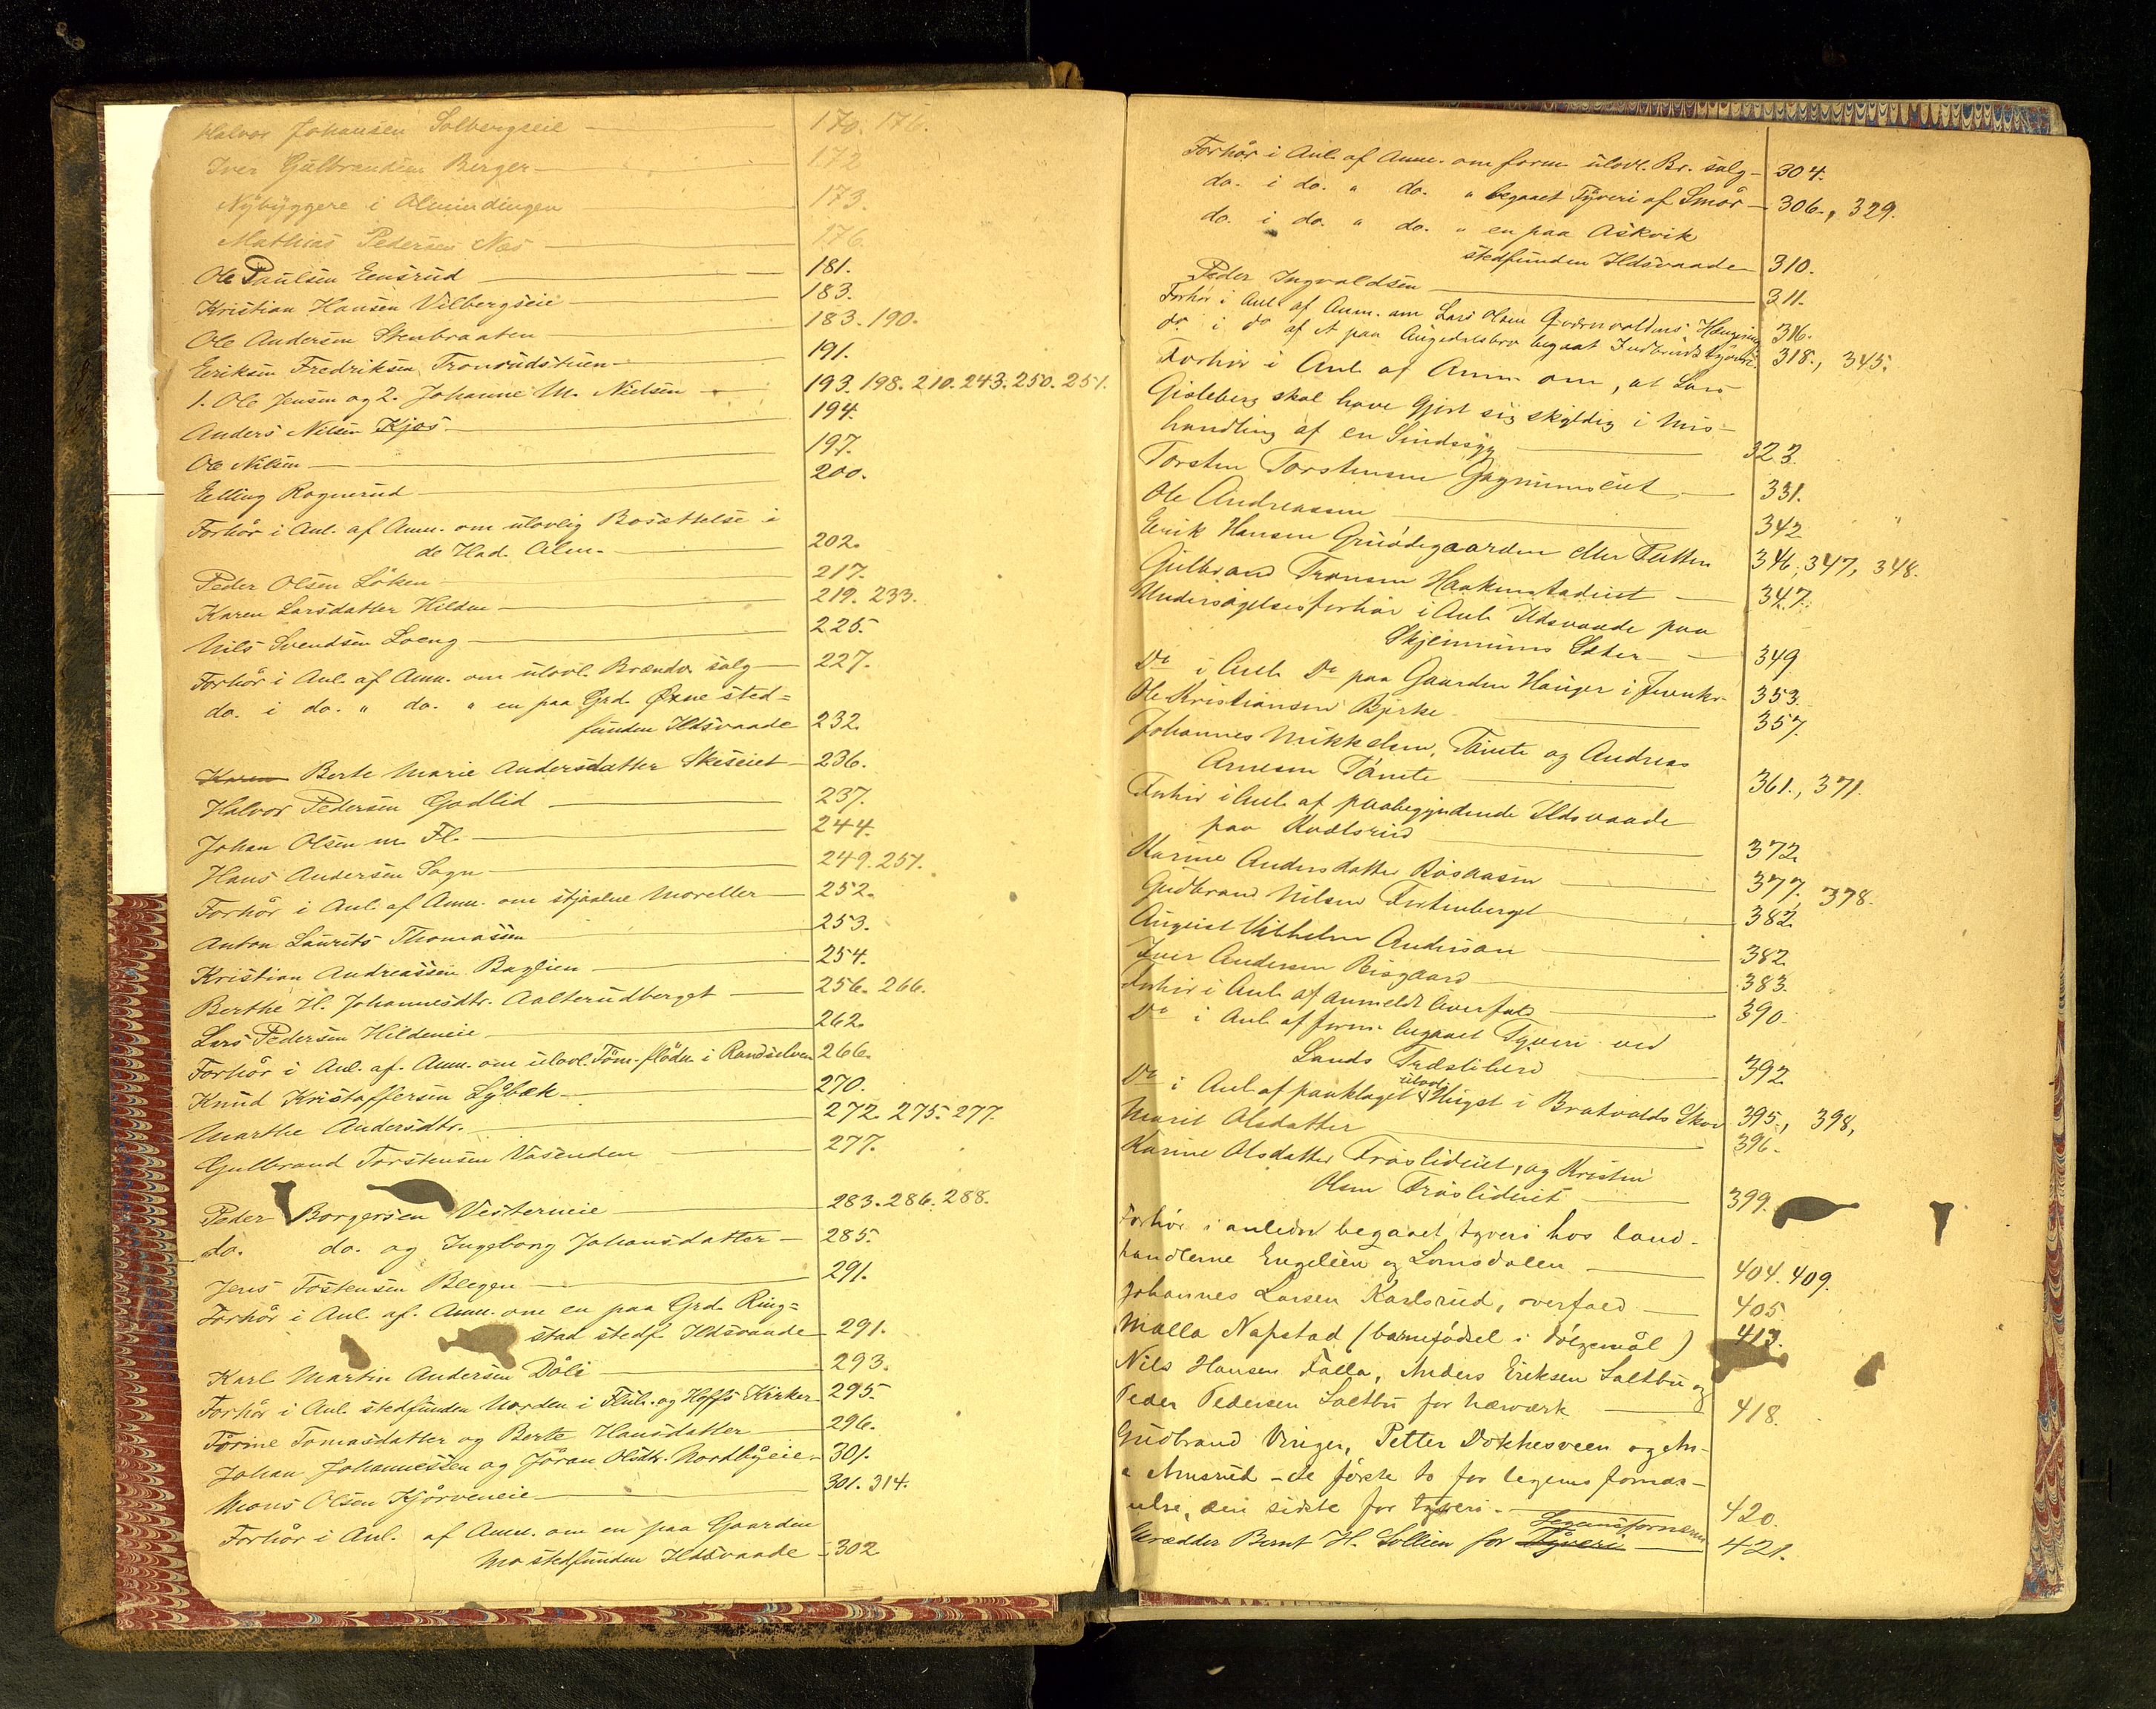 Halvor Johansen Solbergseie — 170. 176.
Iver Gulbrandsen Berger — 172
Nybyggere i Almindingen 173.
Mathias Pedersen Næs — 176.
Ole Paulsen Eensrud — 181.
Kristian Hansen Vilbergseie — 183.
Ole Andersen Stenbraaten — 183. 190.
Eriksen Fredriksen 191.
1. Ole Jensen og 2. Johanne M. Nielsen — 193. 198. 210. 243. 250. 251.
Anders Nilsen Kjos — 194.
Ole Nilsen — 197.
Elling Rognerud — 200.
Forhør i Anl. af Anm. om ulovlig Bosættelse i
de Had. Alm. — 202.
Peder Olsen Løken — 217.
Karen Larsdatter Hilden — 219. 233.
Nils Svendsen Loeng — 225.
Forhør i Anl. af Anm. om ulovl. Brændev. salg — 227.
do. i do. " do. " en paa Grd. Øxne sted=
funden Ildsvaade 232.
Karen Berte Marie Andersdatter Skiseiet — 236.
Halvor Pedersen Godlid — 237.
Johan Olsen m. Fl. — 244.
Hans Andersen Sogn — 249. 251.
Forhør i Anl. af Anm. om stjaalne Moreller — 252.
Anton Laurits Thomassen — 253.
Kristian Andreassen Baglien — 254.
Berthe H. Johannesdtr. Aalterudberget — 256. 266.
Lars Pedersen Hildeneie — 262.
Forhør i Anl. af. Anm. om ulovl. Tøm.flødn. i Randselven 266.
Knud Kristoffersen Lybæk — 270.
Marthe Andersdtr. — 272. 275. 277.
Gulbrand Torstensen Vasenden — 277.
Peder Borgersen Vestermeie — 283. 286. 288.
do. do. og Ingeborg Johansdatter — 285.
Jens Tostensen Blegen — 291.
Forhør i Anl. af. Anm. om en paa Grd. Ring=
stad stedf. Ildsvaade 291.
Karl Martin Andersen Døli — 293.
Forhør i Anl. stedfunden Uorden i Flub. og Hoffs Kirker 295.
Tørine Tomasdatter og Berte Hansdatter — 296.
Johan Johannessen og Jøran Olsdtr. Nordbyeie — 301.
Mons Olsen Kjørveneie — 301. 314.
Forhør i Anl. af Anm. om en paa Gaarden
Mo stedfunden Ildsvaade — 302
Forhør i Anl. af Anm. om form. ulovl. Br. salg — 304.
do. i do. " do. " begaaet Tyveri af Smør — 306., 329.
do. i do. " do. " en paa Askvik
stedfunden Ildsvaade — 310.
Peder Ingvaldsen — 311.
Forhør i Anl. af Anm. om Lars Olsen 316.
do i do af et paa begaaet Indbrudstyveri. 318., 345.
Forhør i Anl. af Anm. om, at Lars
Gisleberg skal have gjort sig skyldig i Mis-
handling af en Sindssyg — 323.
Torsten Torstensen — 331.
Ole Andreassen — 342.
Erik Hansen Gruødegaarden eller Putten 346., 347, 348.
Gulbrand Tronsen Haakenstadeiet — 347.
Undersøgelsesforhør i Anl. Ildsvaade paa
Skjennums Sæter — 349
Do i Anl. Do paa Gaarden Hauger i Jevnkr. 353.
Ole Kristiansen Bjerke — 357.
Johannes Mikkelsen Tømte og Andreas
Arnesen Tømte — 361., 371.
Forhør i Anl. af paabegyndende Ildsvaade
paa — 372.
Karine Andersdatter — 377, 378.
Gudbrand Nilsen — 382.
August Vilhelm Anderson — 382.
Iver Andersen Risgaard — 383.
Forhør i Anl. af anmeldt Overfald — 390.
Do i Anl. af form. begaaet Tyveri ved
Lands Træsliberi — 392.
Do i Anl. af paaklaget ulovl. Hugst i Bratvolds Skov 395., 398,
Marit Olsdatter — 396.
Karine Olsdatter Frøslideiet, og Kristen
Olsen Frøslideiet — 399.
Forhør i anledn begaaet tyveri hos land-
handlerne Engelien og Lomsdalen — 404. 409.
Johannes Larsen Karlsrud, overfald — 405
Malla Napstad (barnefødsel i dølgsmål) 413.
Nils Hansen Falla, Anders Eriksen Saltbu og
Peder Pedersen Saltbu for hærværk — 418.
Gudbrand Viriger, Petter Dokkesveen og An-
a Amsrud – de første to for legems fornær-
melse, den sidste for tyveri. — 420.
Skrædder Bernt H. Sollien for Tyveri Legemsfornærm — 421.